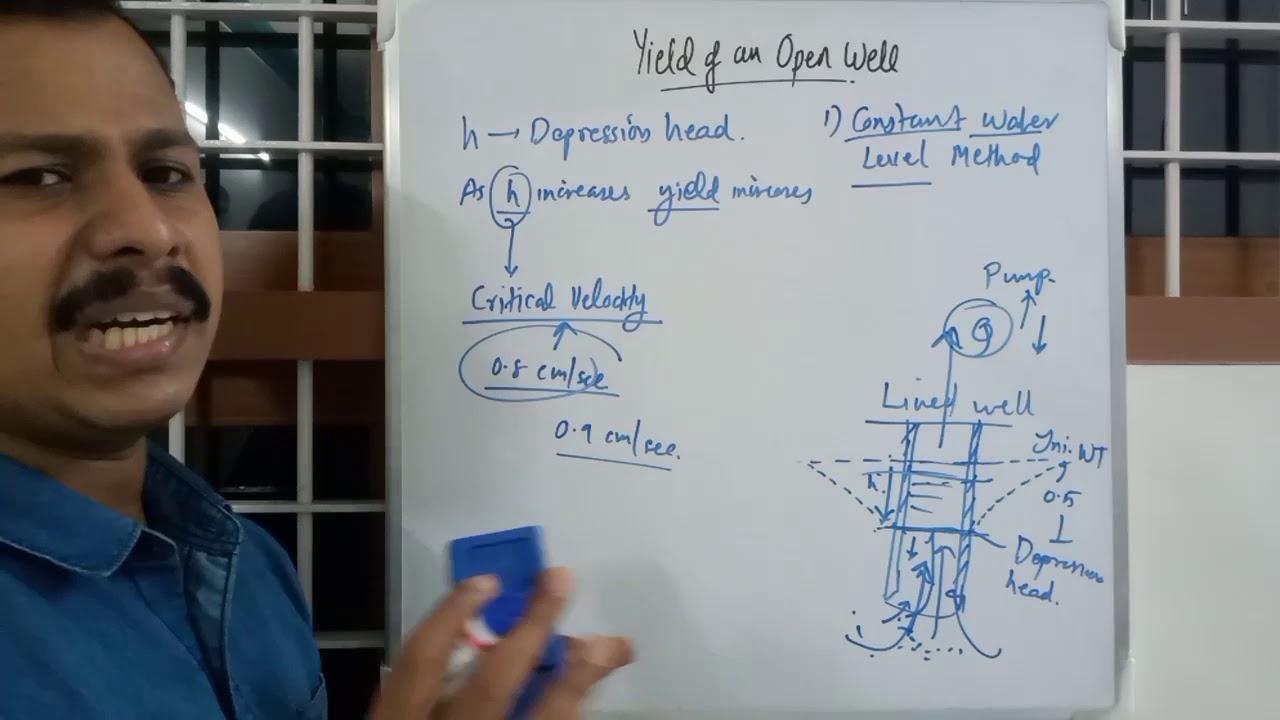 Yield of an Open Well
h → Depression head.
As h increases yield increases
Critical Velocity
0.8 cm/sec
0.9 cm/sec.
1) Constant Water
Level Method
Pump
Q
Lined well
Ini. WT
h
0.5
1
Depression
head.